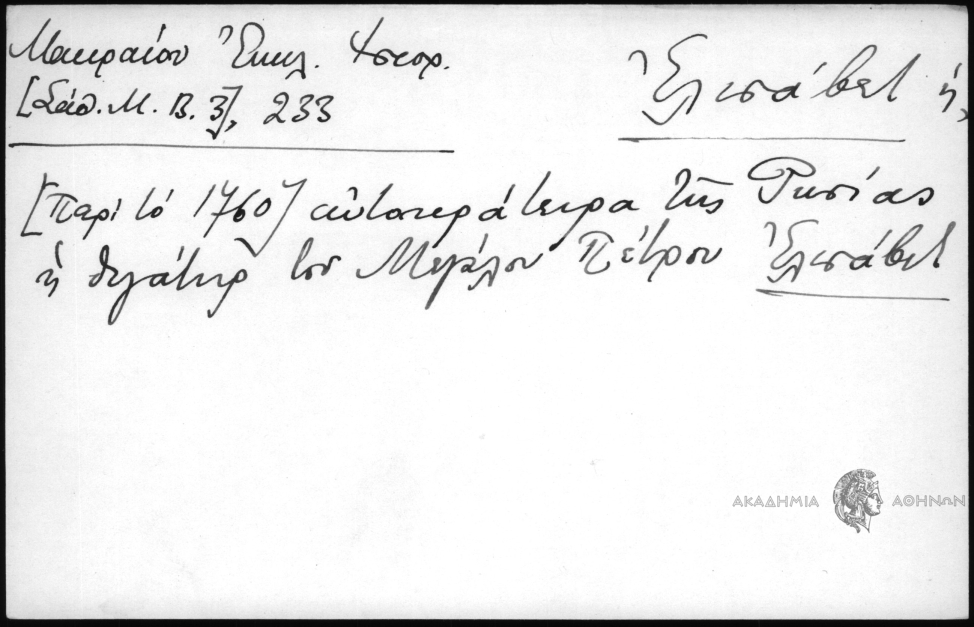 Μακραίου Ἐκκλ. Ὑπερ.
[Σάθ. Μ. Β. 3], 233
Ἐλισάβετ ἡ,
[Περὶ τὸ 1760] αὐτοκράτειρα τῆς Ρωσίας
ἡ θυγάτηρ τοῦ Μεγάλου Πέτρου Ἐλισάβετ
ΑΚΑΔΗΜΙΑ ΑΘΗΝΩΝ